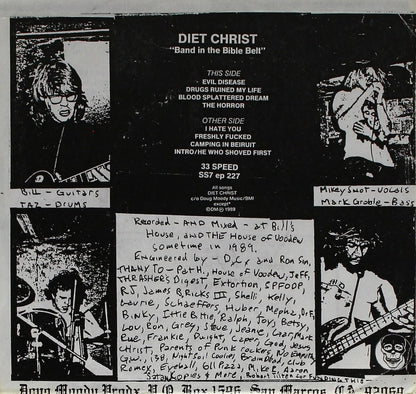 DIET CHRIST
"Band in the Bible Belt"
THIS SIDE
EVIL DISEASE
DRUGS RUINED MY LIFE
BLOOD SPLATTERED DREAM
THE HORROR
OTHER SIDE
I HATE YOU
FRESHLY FUCKED
CAMPING IN BEIRUT
INTRO/HE WHO SHOVED FIRST
33 SPEED
SS7 ep 227
All songs
DIET CHRIST
c/o Doug Moody Music/BMI
except*
©DM℗ 1989
Bill - Guitars
TAZ - DRUMS
Mikey Snot - Vocals
Mark Groble - Bass
Recorded - AND Mixed - at Bill's
House, and THE House of Vooden
sometime in 1989.
Engineered by - and Ron Sun,
THANX TO - Path, House of Vooden, Jeff,
THRASHER'S Digest, Extortion, SPFOOP,
RJ, James BRICKS III, Shelli, Kelly,
Laurie, Schaeffers, Hubert, Mephz,
Binky, Ittie Bittie, Ralph, Joy, Betsy,
Lou, Ron, Greg, Steve, Jeanne, Char, Mark
Rue, Frankie, Dwight, Caper, God, Jesus
Christ, Parents of Punk Rockers, No Empathy
GWN, 138, Night Soil Coolies, Club
Romex, Eyeball, Gil Pizza, Mike E, Aaron
Satan, & More, Robert Tilton For FUNDING THIS -
Doug Moody Prodx P.O. Box 1596, San Marcos, CA. 92069